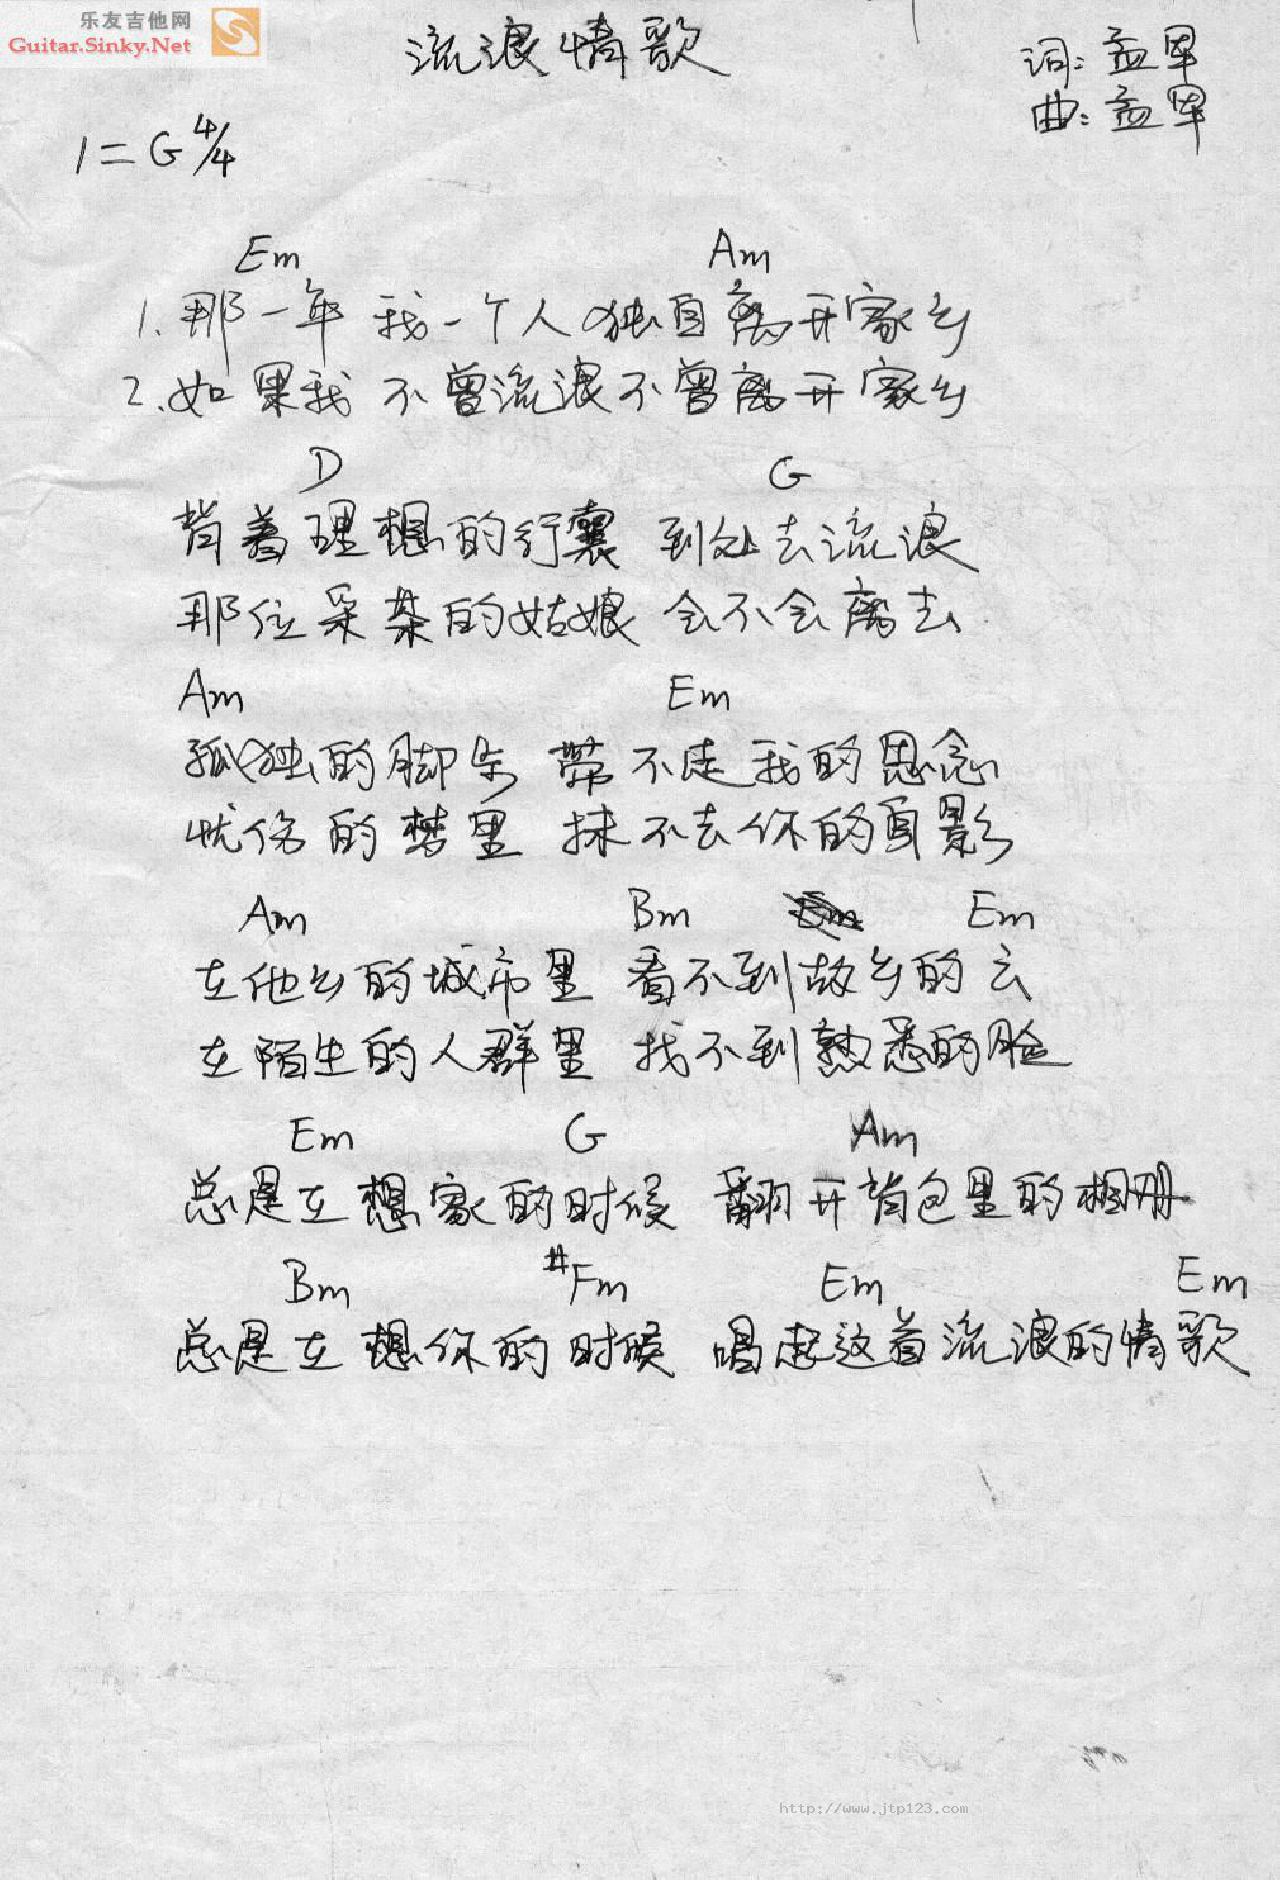 乐友吉他网
Guitar.Sinky.Net
流浪情歌
词: 孟军
曲: 孟军
1=G 4/4
Em Am
1. 那一年 我一个人独自离开家乡
2. 如果我 不曾流浪不曾离开家乡
D G
背着理想的行囊 到处去流浪
那位采茶的姑娘 会不会离去
Am Em
孤独的脚步 带不走我的思念
忧伤的梦里 抹不去你的身影
Am Bm Em
在他乡的城市里 看不到故乡的云
在陌生的人群里 找不到熟悉的脸
Em G Am
总是在想家的时候 翻开背包里的相册
Bm #Fm Em Em
总是在想你的时候 唱起这首流浪的情歌
http://www.jtp123.com